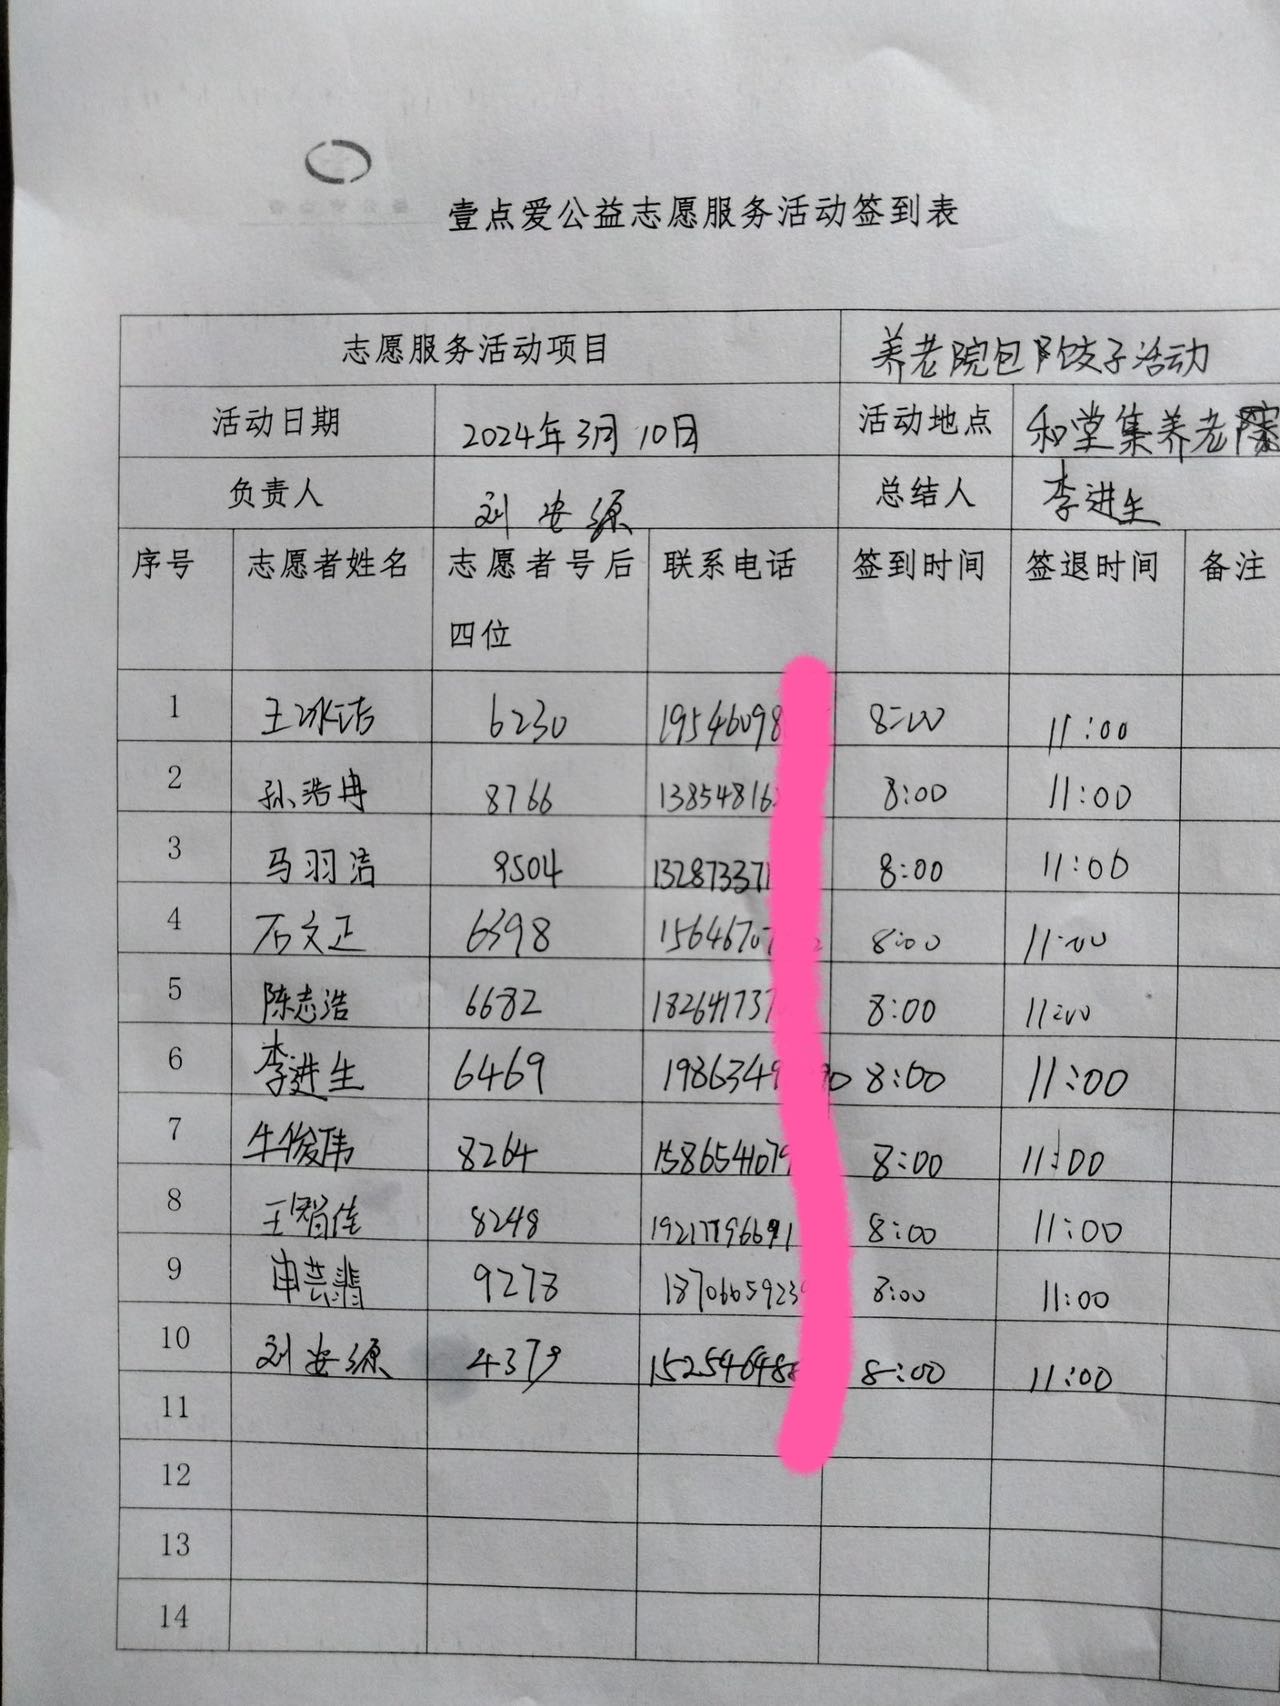 壹点爱公益志愿服务活动签到表
志愿服务活动项目 养老院包饺子活动
活动日期 2024年3月10日 活动地点 和堂集养老院
负责人 刘安源 总结人 李进生
序号 志愿者姓名 志愿者号后四位 联系电话 签到时间 签退时间 备注
1 王冰洁 6230 19546098 8:00 11:00
2 孙浩冉 8766 13854816 8:00 11:00
3 马羽洁 9504 132873371 8:00 11:00
4 石文正 6398 15646707 8:00 11:00
5 陈志浩 6682 18264173 8:00 11:00
6 李进生 6469 1986349 90 8:00 11:00
7 牛俊伟 8264 1586541079 8:00 11:00
8 王智佳 8248 8:00 11:00
9 申芸翡 9278 1870665923 8:00 11:00
10 刘安源 4379 152546488 8:00 11:00
11
12
13
14